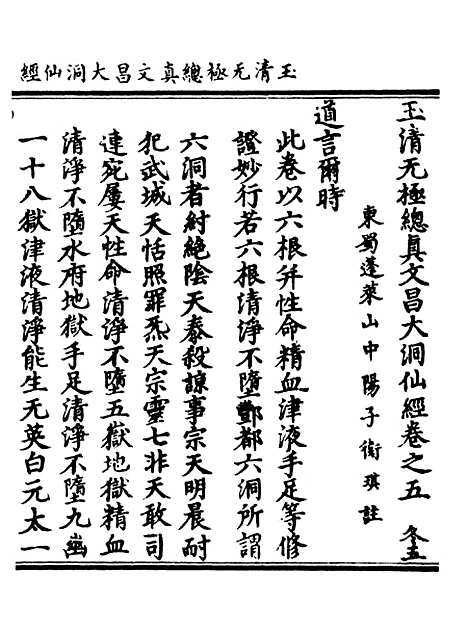 玉清无極總真文昌大洞仙經
玉清无極總真文昌大洞仙經卷之五 冬五
東蜀蓬萊山中陽子衞琪註
道言爾時
此卷以六根并性命精血津液手足等修
證妙行若六根清淨不墮酆都六洞所謂
六洞者紂絶陰天泰殺諒事宗天明晨耐
犯武城天恬照罪炁天宗靈七非天敢司
連宛屢天性命清淨不墮五嶽地獄精血
清淨不墮水府地獄手足清淨不墮九幽
一十八獄津液清淨能生无英白元太一